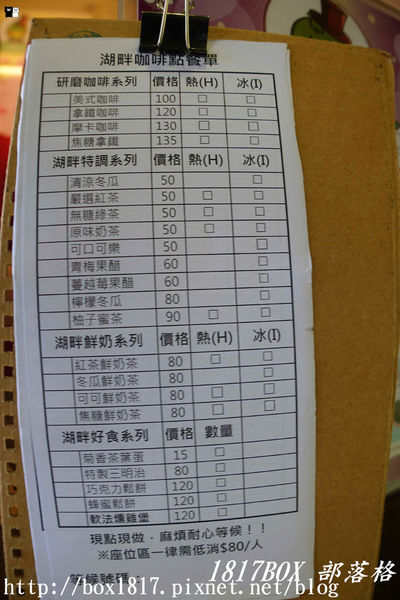 湖畔咖啡點餐單
研磨咖啡系列 價格 熱(H) 冰(I)
美式咖啡 100 □ □
拿鐵咖啡 120 □ □
摩卡咖啡 130 □ □
焦糖拿鐵 135 □ □
湖畔特調系列 價格 熱(H) 冰(I)
清涼冬瓜 50 □
嚴選紅茶 50 □ □
無糖綠茶 50 □ □
原味奶茶 50 □ □
可口可樂 50 □
青梅果醋 60 □
蔓越莓果醋 60 □
檸檬冬瓜 80 □
柚子蜜茶 90 □ □
湖畔鮮奶系列 價格 熱(H) 冰(I)
紅茶鮮奶茶 80 □ □
冬瓜鮮奶茶 80 □
可可鮮奶茶 80 □ □
焦糖鮮奶茶 80 □ □
湖畔好食系列 價格 數量
菊香茶葉蛋 15 □
特製三明治 80 □
巧克力鬆餅 120 □
蜂蜜鬆餅 120 □
軟法燻雞堡 120 □
現點現做，麻煩耐心等候！！
※座位區一律需低消$80/人
等候號碼
1817BOX 部落格
http://box1817.pixnet.net/blog